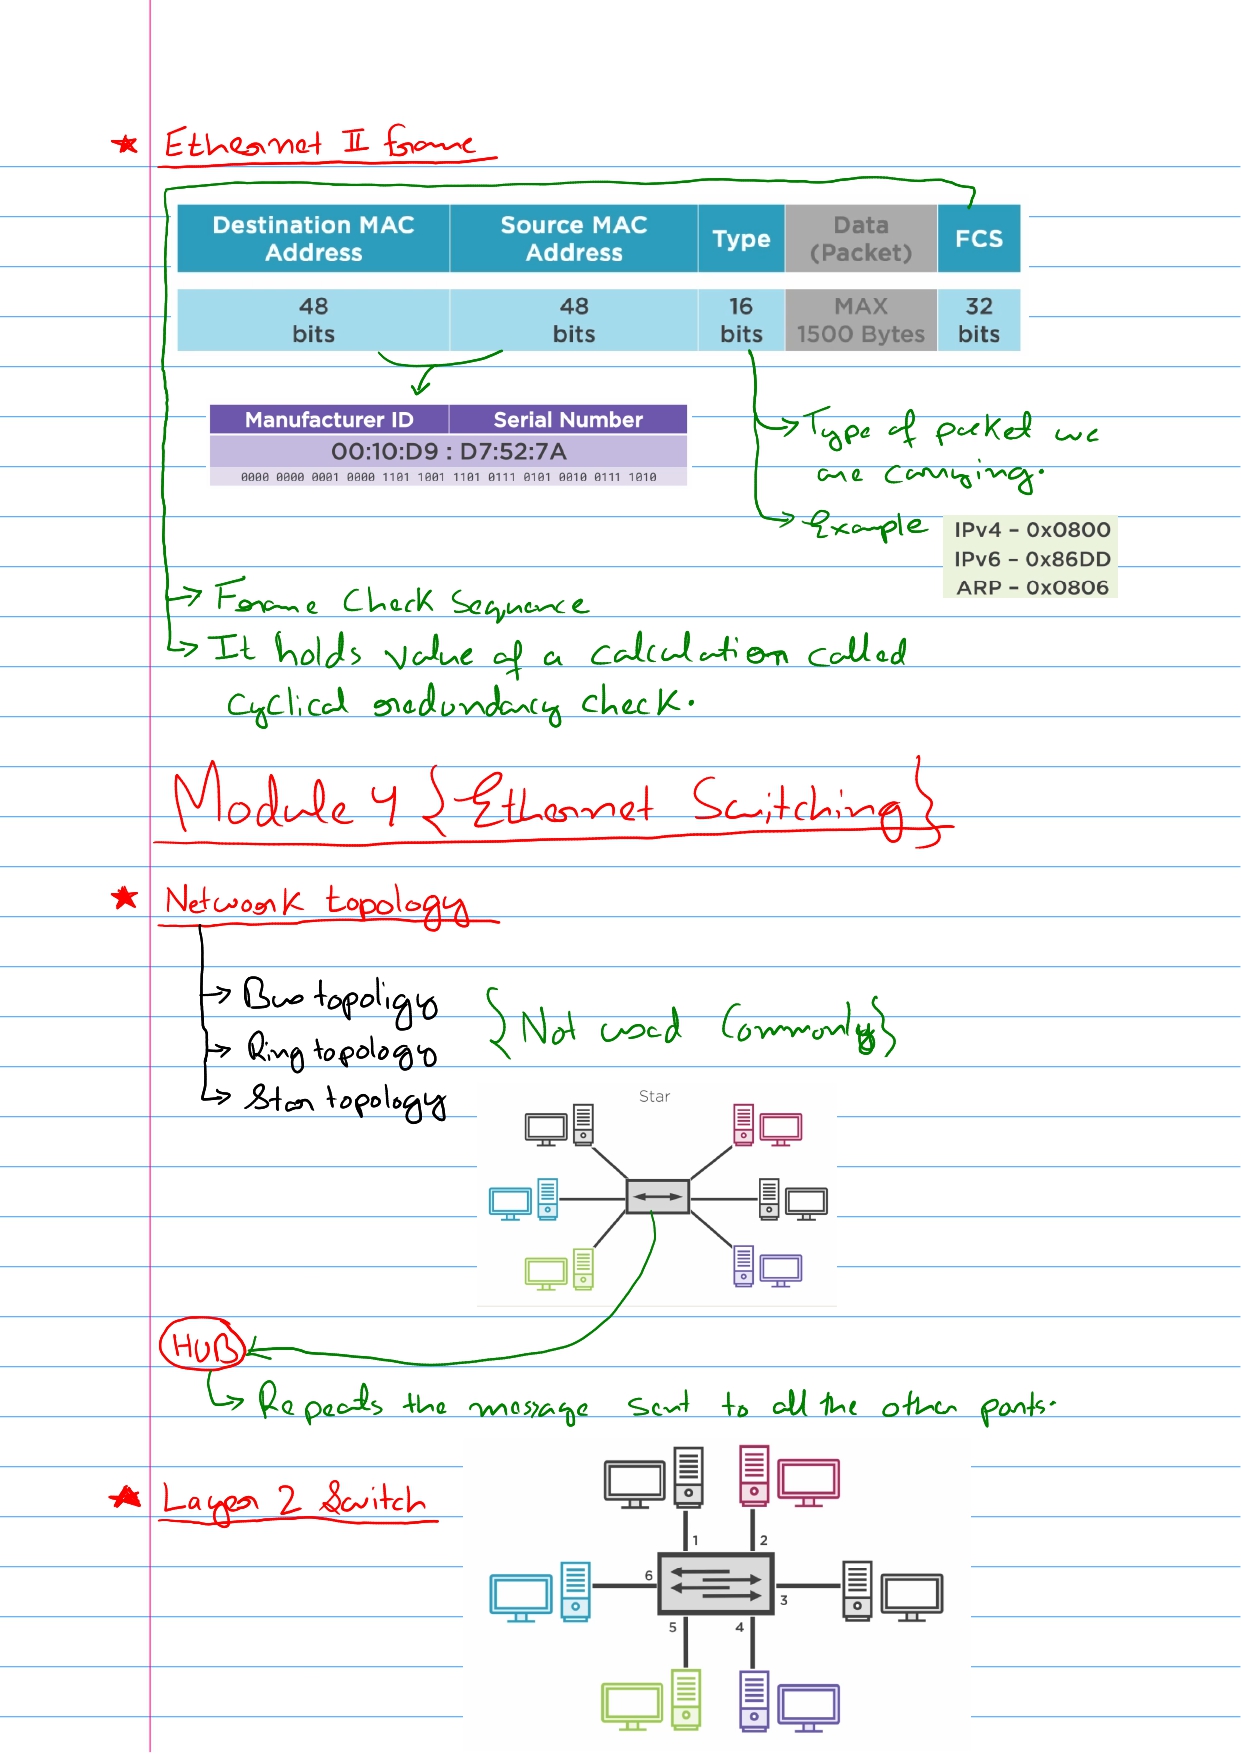 Ethernet II frame
Destination MAC Address Source MAC Address Type Data (Packet) FCS
48 bits 48 bits 16 bits MAX 1500 Bytes 32 bits
Manufacturer ID Serial Number
00:10:D9 : D7:52:7A
0000 0000 0001 0000 1101 1001 1101 0111 0101 0010 0111 1010
Type of packet we
are carrying.
Example
IPv4 - 0x0800
IPv6 - 0x86DD
ARP - 0x0806
Frame Check Sequence
It holds value of a calculation called
cyclical redundancy check.
Module 4 {Ethernet Switching}
Network topology
Bus topoligy
Ring topology
{Not used Commonly}
Star topology
Star
HUB
Repeats the message sent to all the other ports.
Layer 2 Switch
1 2
6
3
5 4